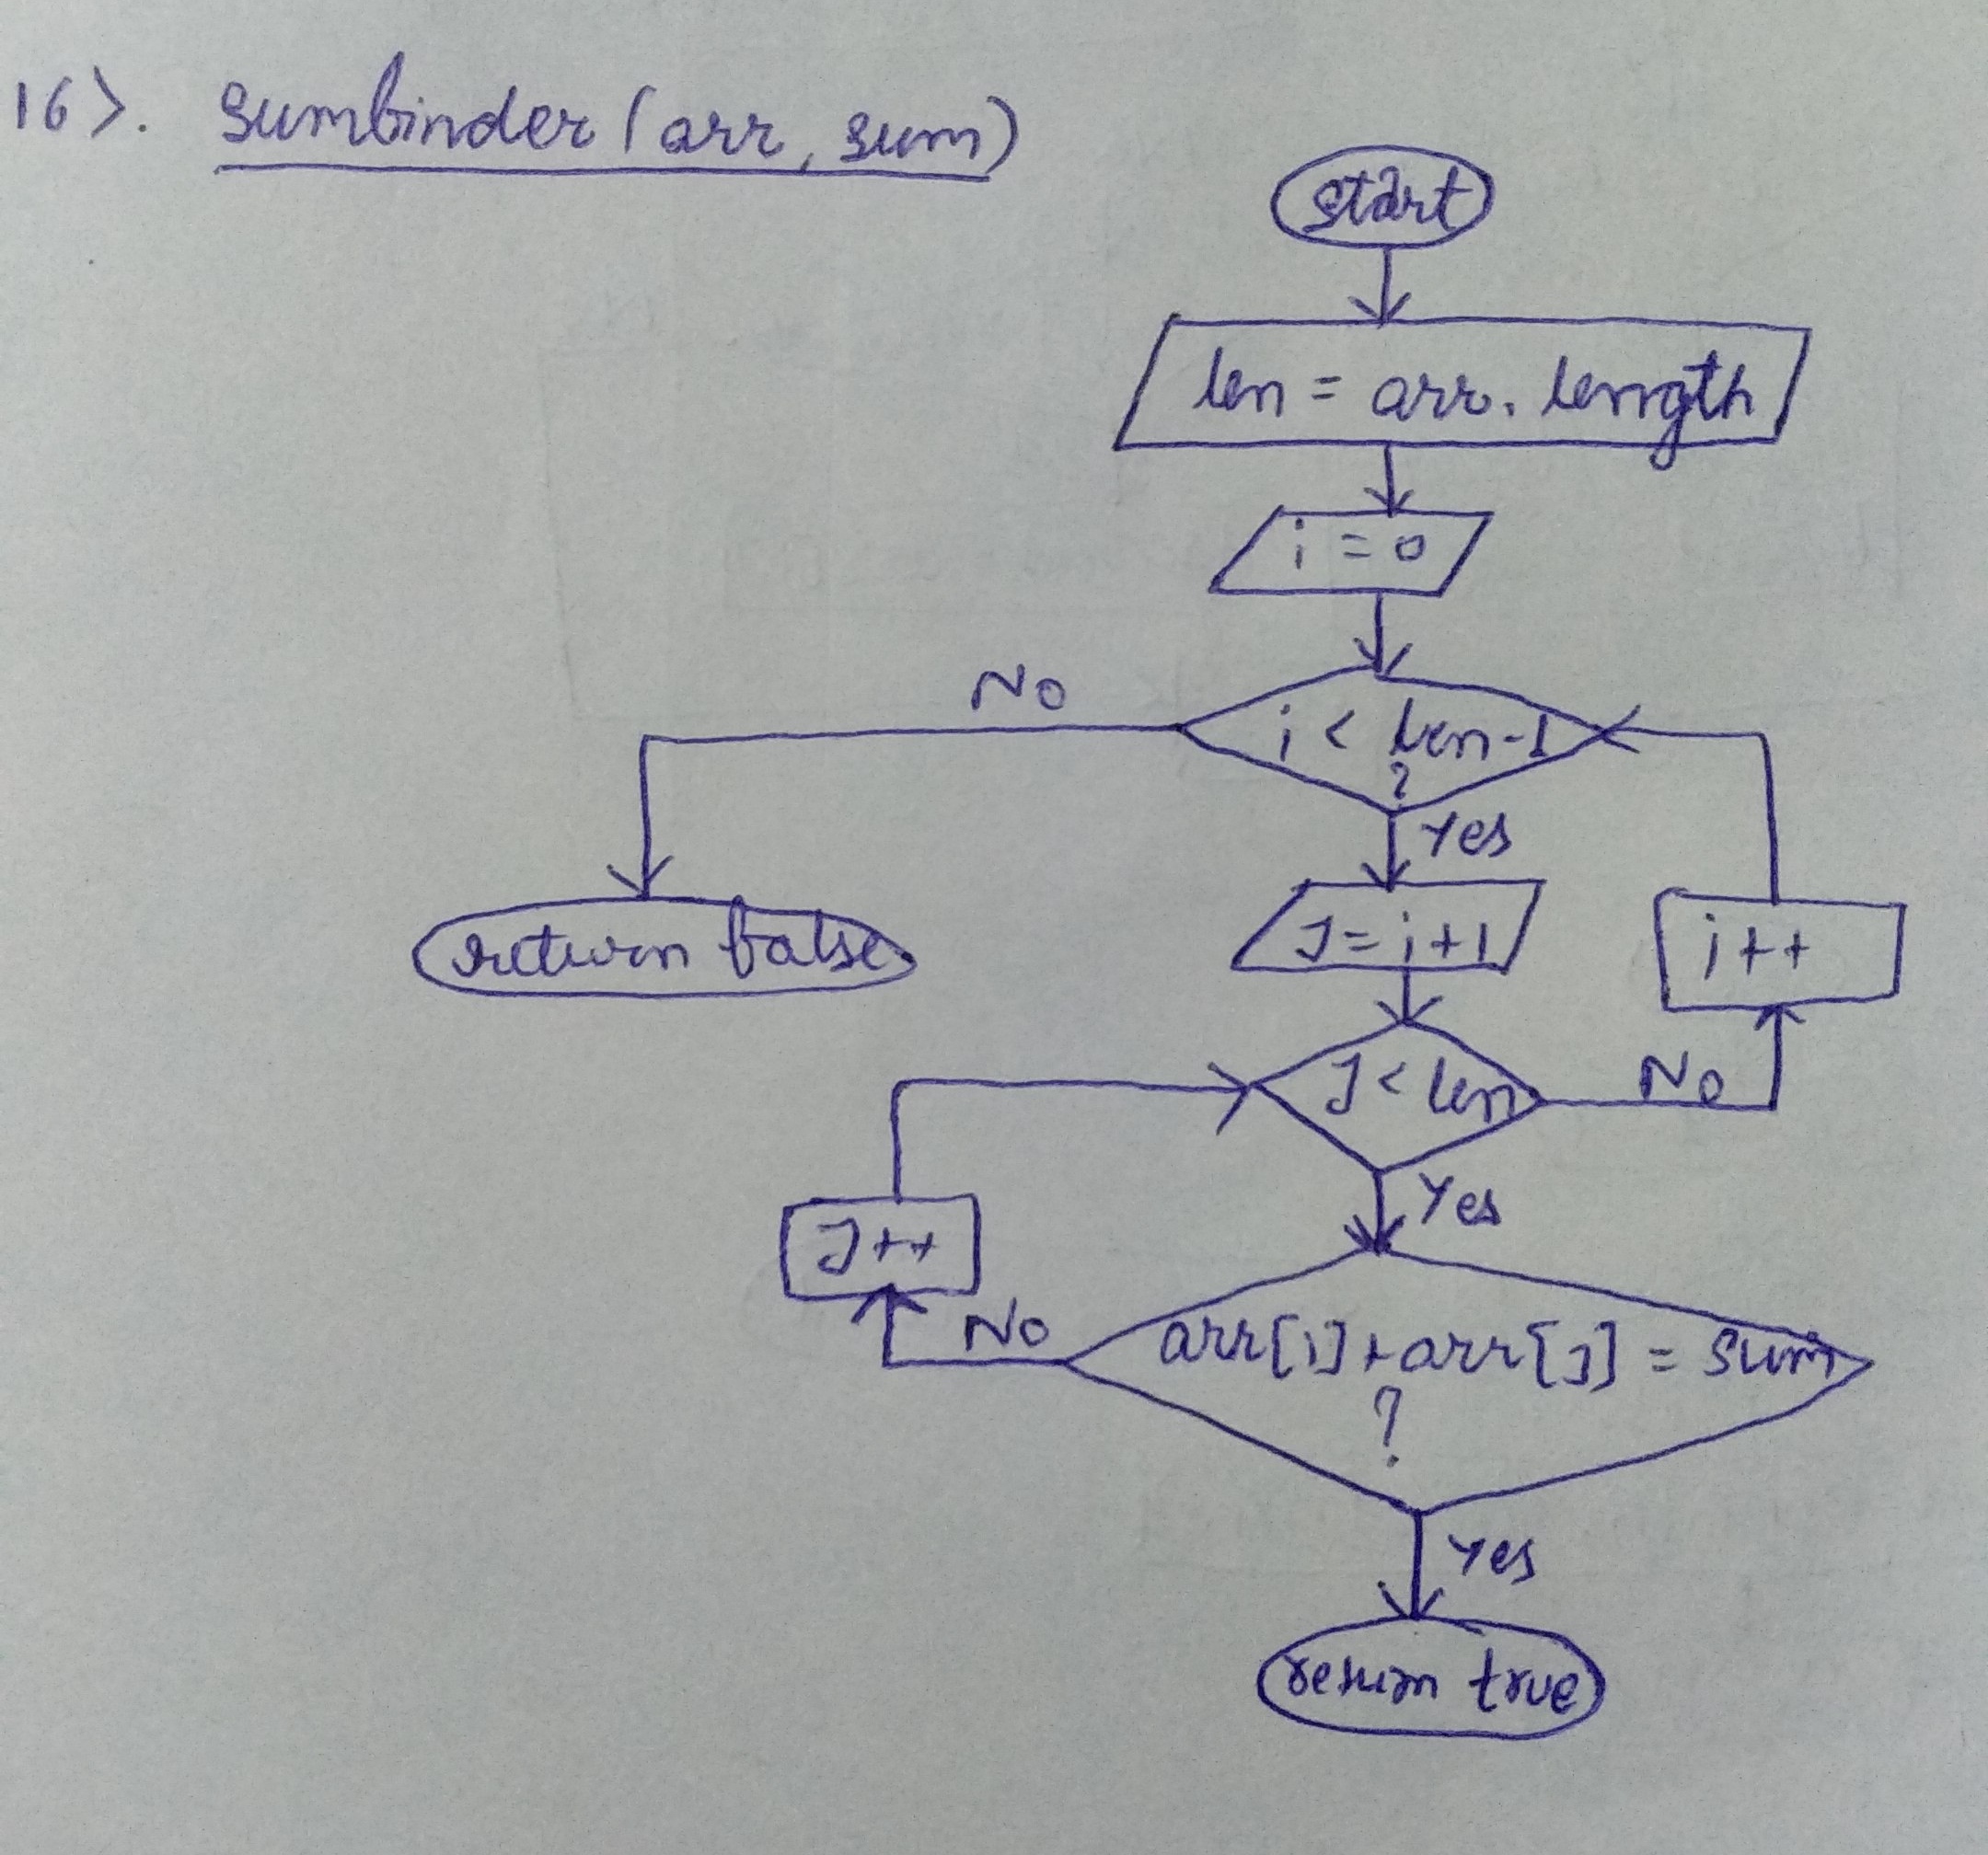 16>. sumbinder (arr, sum)
start
len = arr. length
i = 0
No
i < len-1
?
Yes
return false
J = i+1
i++
J < len
No
Yes
J++
No
arr[i]+arr[J] = sum
?
Yes
return true